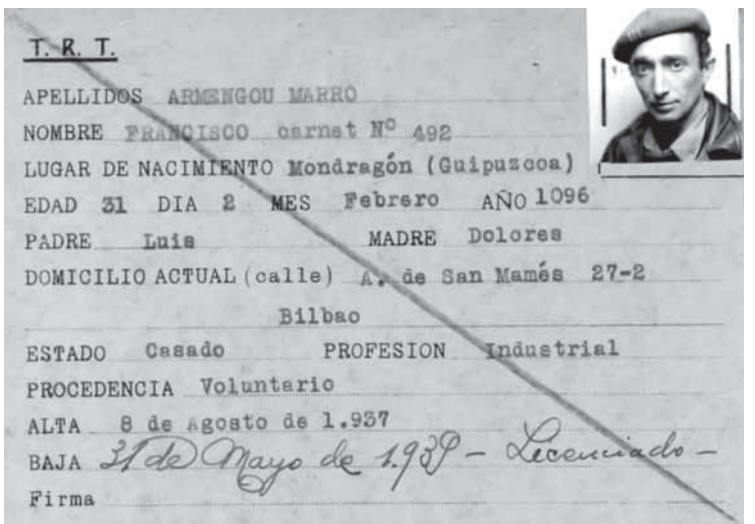 T. R. T.
APELLIDOS ARMENGOU MARRO
NOMBRE FRANCISCO carnet Nº 492
LUGAR DE NACIMIENTO Mondragón (Guipuzcoa)
EDAD 31 DIA 2 MES Febrero AÑO 1096
PADRE Luis MADRE Dolores
DOMICILIO ACTUAL (calle) A. de San Mamés 27-2
Bilbao
ESTADO Casado PROFESION Industrial
PROCEDENCIA Voluntario
ALTA 8 de Agosto de 1.937
BAJA 31 de Mayo de 1.939 - Licenciado -
Firma